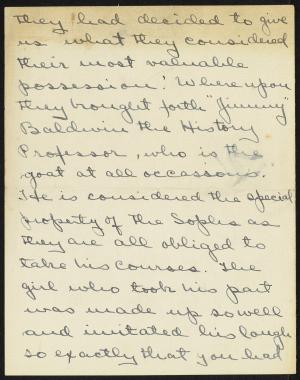 they had decided to give
us what they considered
their most valuable
possession! Whereupon
they brought forth "Jimmy"
Baldwin the History
Professor, who is the
goat at all occassons.
He is considered the special
property of the Sophs as
they are all obliged to
take his courses. The
girl who took his part
was made up so well
and imitated his laugh
so exactly that you had